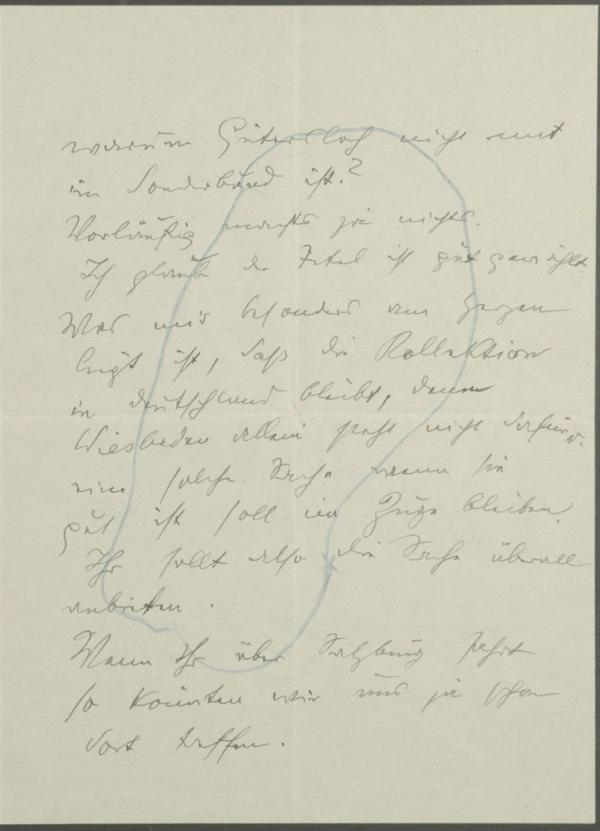 warum Gütersloh nicht mit
im Sonderbund ist?
Vorläufig machts ja nichts.
Ich glaube der Titel ist gut gewählt.
Was mir besonders am Herzen
liegt ist, daß die Kollektion
in Deutschland bleibt, denn
Wiesbaden allein steht nicht dafür u.
eine solche Sache wenn sie
gut ist soll im Zuge bleiben.
Ihr sollt also die Sache überall
anbieten.
Wenn Ihr über Salzburg fahrt
so könnten wir uns ja schon
dort treffen.